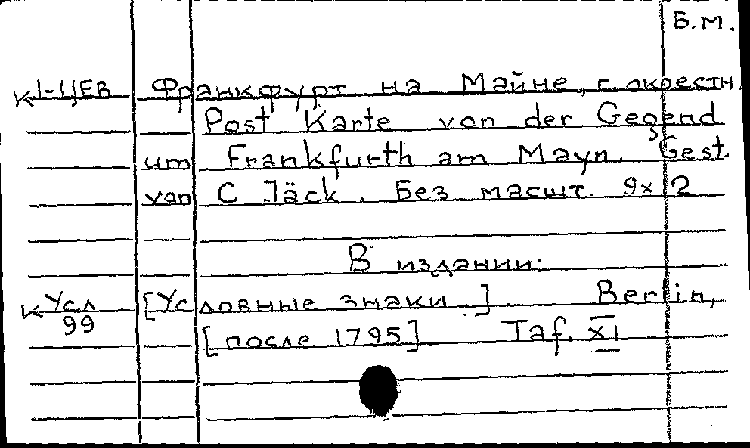 Б.М.
К 1-ЦЕВ Франкфурт на Майне, с окрестн.
Post Karte von der Gegend
um Frankfurth am Mayn. Gest.
van C Jäck. Без масшт. 9x12
В издании:
К Усл [Условные знаки]. Berlin,
99 [после 1795] Taf. XI